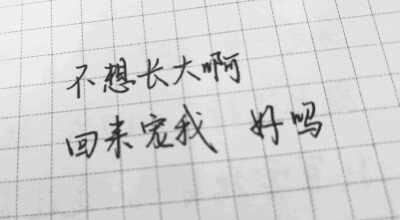 不想长大啊
回来宠我 好吗